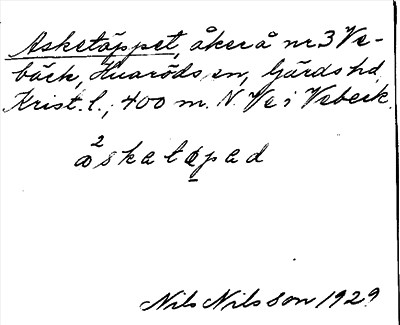 Asketäppet, åker å nr 3 Ve-
bäck, Huaröds sn, Gärds hd,
Krist. l., 400 m. N. V. i Vebeck.
a²skatępad
Nils Nilsson 1929